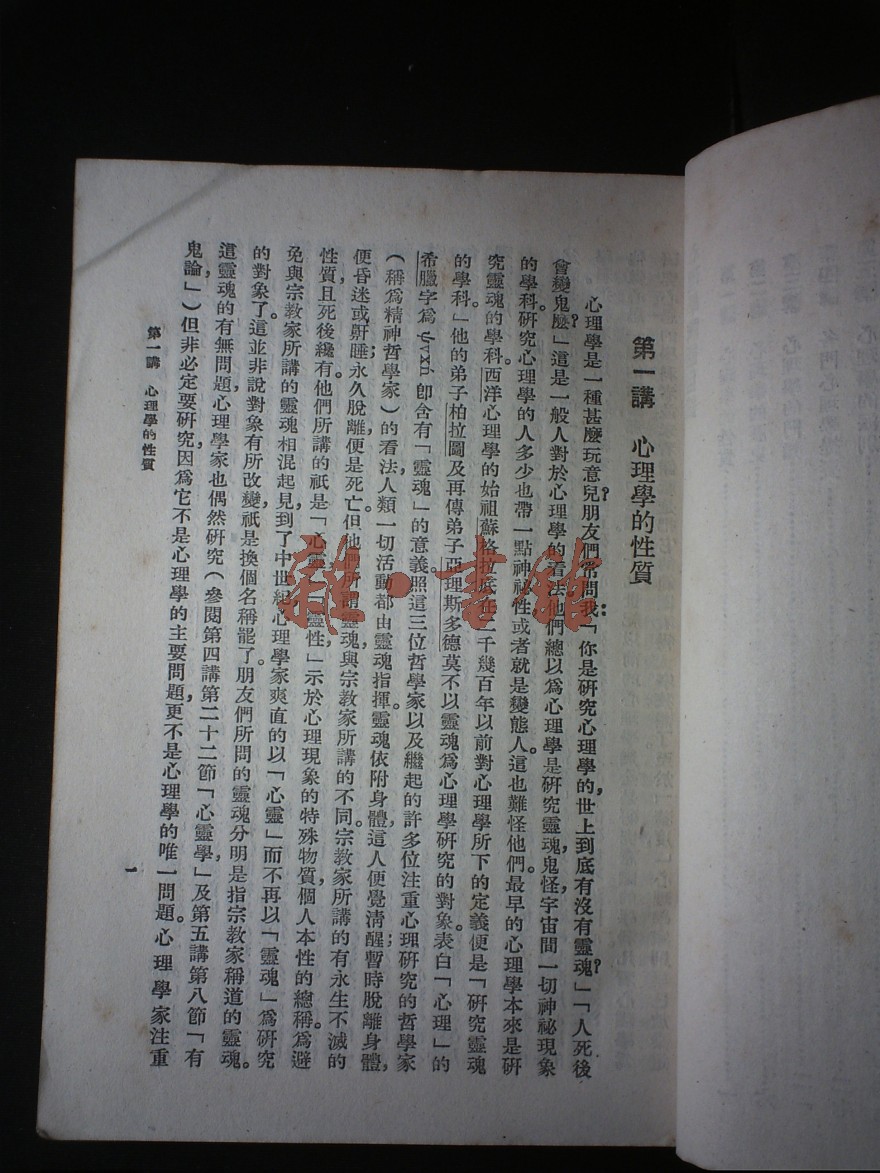 第一講　心理學的性質
心理學是一種甚麼玩意兒？朋友們常問我：「你是研究心理學的，世上到底有沒有靈魂？」「人死後
會變鬼麼？」這是一般人對於心理學的看法，他們總以爲心理學是研究靈魂，鬼怪，宇宙間一切神祕現象
的學科。研究心理學的人多少也帶一點神祕性，或者就是變態人。這也難怪他們。最早的心理學本來是研
究靈魂的學科。西洋心理學的始祖蘇格拉底在二千幾百年以前對心理學所下的定義便是「研究靈魂
的學科」。他的弟子柏拉圖及再傳弟子亞理斯多德莫不以靈魂爲心理學研究的對象。表白「心理」的
希臘字爲 ψυχή 卽含有「靈魂」的意義。照這三位哲學家以及繼起的許多位注重心理研究的哲學家
（稱爲精神哲學家）的看法，人類一切活動都由靈魂指揮。靈魂依附身體，這人便覺清醒；暫時脫離身體，
便昏迷或鼾睡；永久脫離，便是死亡。但他們所謂靈魂與宗教家所講的不同。宗教家所講的有永生不滅的
性質，且死後纔有。他們所講的祇是「心靈」「靈性」示於心理現象的特殊物質，個人本性的總稱。爲避
免與宗教家所講的靈魂相混起見，到了中世紀心理學家爽直的以「心靈」而不再以「靈魂」爲研究
的對象了。這並非說對象有所改變，祇是換個名稱罷了。朋友們所問的靈魂分明是指宗教家稱道的靈魂。
這靈魂的有無問題，心理學家也偶然研究（參閱第四講第二十二節「心靈學」及第五講第八節「有
鬼論」）但非必定要研究，因爲它不是心理學的主要問題，更不是心理學的唯一問題。心理學家注重
第一講　心理學的性質
一
雜·書館